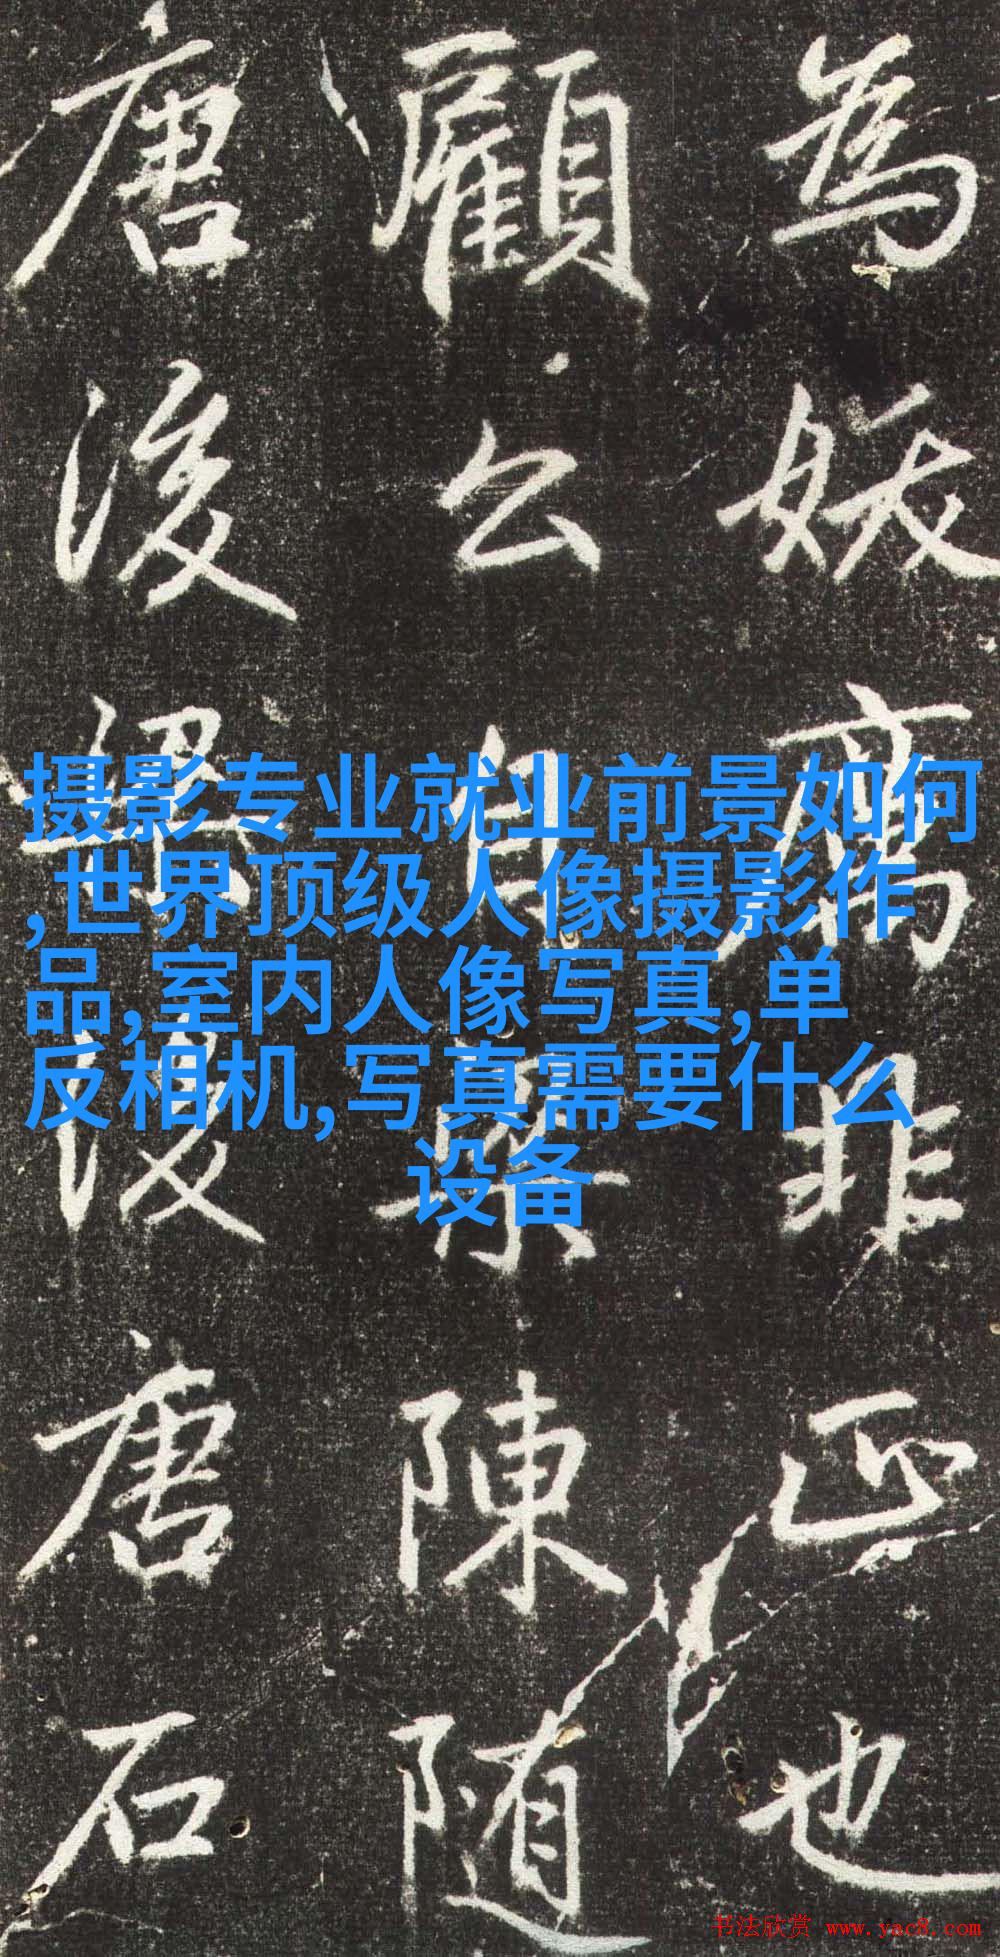 為妖非正也
顧公自陳隨
唐後復唐石
摄影专业就业前景如何
,世界顶级人像摄影作
品,室内人像写真,单
反相机,写真需要什么
设备
书法欣赏 www.yac8.com